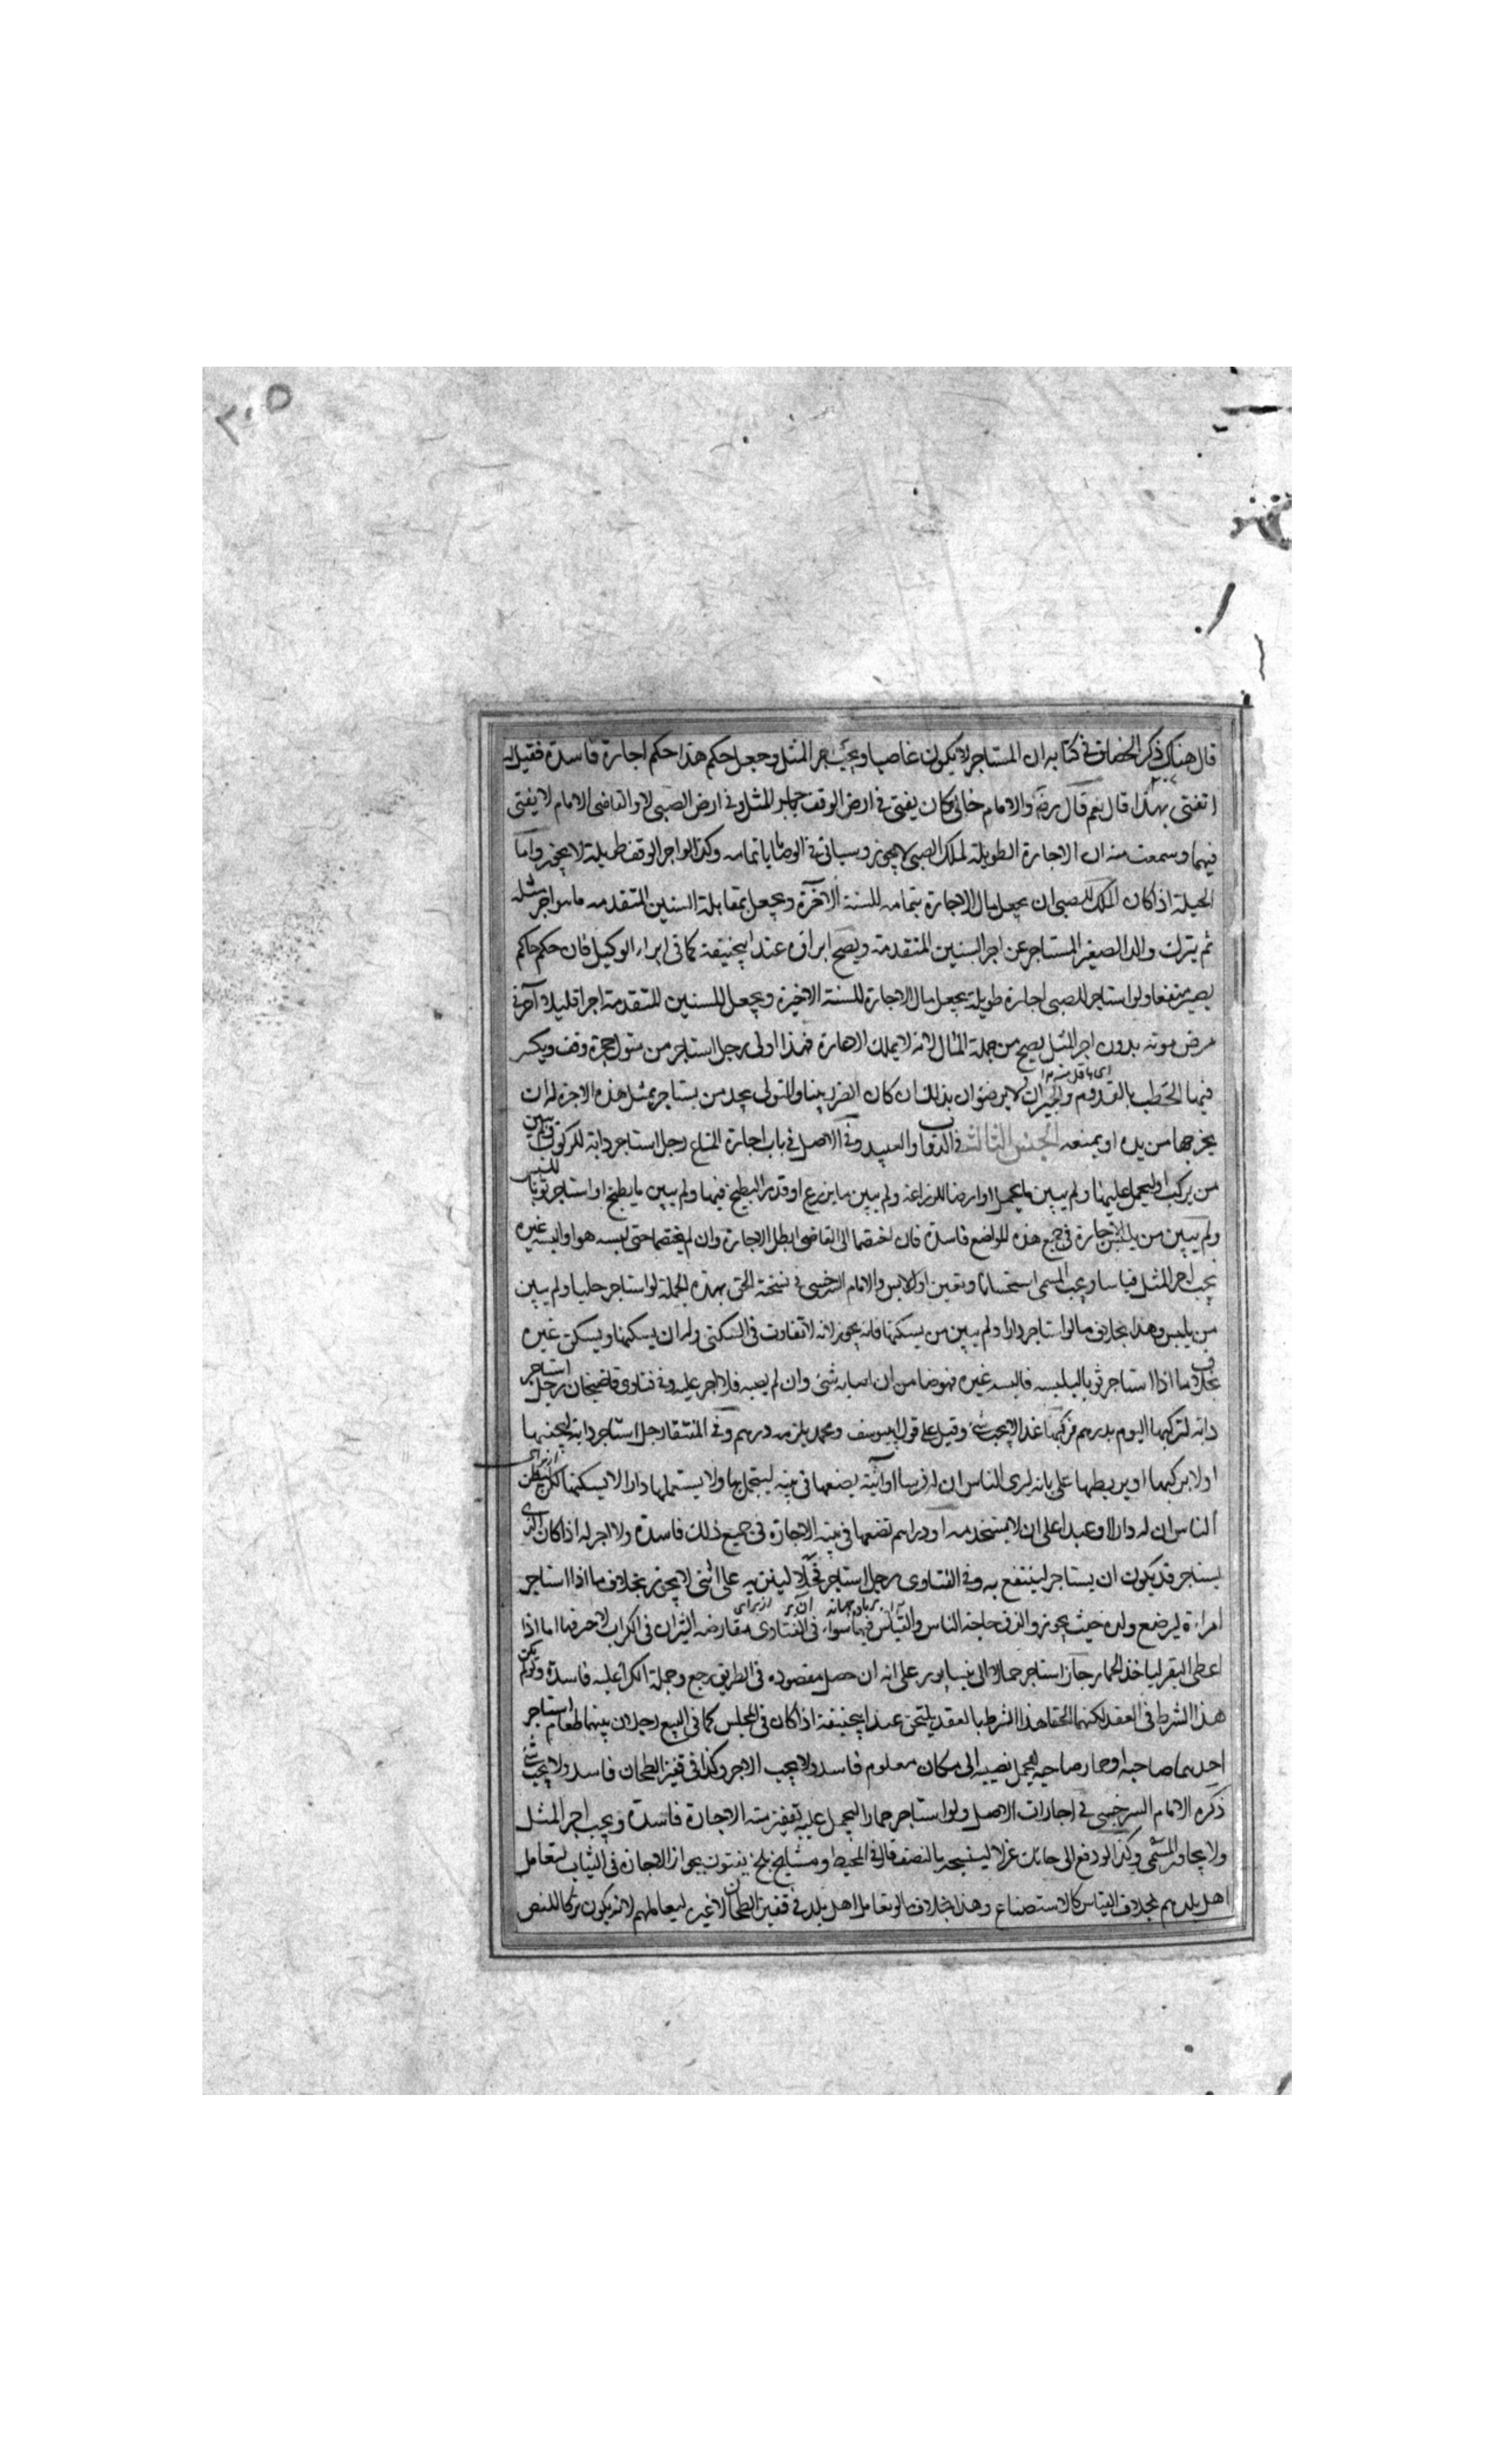 ٣٠٥
قال هناك ذكر الخصاف في كتابه ان المستاجر لا يكون غاصبا ويجب اجر المثل وجعل حكم هذا حكم اجارة فاسدة فقيل له
اتفتي بهذا قال نعم قال رضه والامام خالي كان يفتي في ارض الوقف باجر المثل وفي ارض الصبي لا والقاضي الامام لا يفتي
فيهما وسمعت منه ان الاجارة الطويلة لملك الصبي لا يجوز وسياتي في الوصايا بتمامه وكذا لو اجر الوقف طويلة لا يجوز واما
الحيلة اذا كان الملك للصبي ان يجعل مال الاجارة بتمامه للسنة الآخرة ويجعل بمقابلة السنين المتقدمه ما هو اجر مثله
ثم يترك والد الصغير المستاجر عن اجر السنين المتقدمة ويصح ابراؤه عند ابيحنيفة كما في ابراء الوكيل فان حكم حاكم
يصير متفقا ولو استاجر للصبي اجارة طويلة يجعل مال الاجارة للسنة الاخيرة ويجعل للسنين المتقدمة اجرا قليلا آجر في
مرض موته بدون اجر المثل يصح من جملة المال لانه لا يملك الاعارة فهذا اولى رجل استاجر من متولي حجرة وقف ويكسر
فيها الحطب بالقدوم والجيران لا يرضون بذلك ان كان الضرر بينا والمتولي يجد من يستاجر بمثل هذه الاجرة له ان
يخرجها من يده او يمنعه الجنس الثالث في الدواب والعبيد وفي الاصل في باب اجارة المتاع رجل استاجر دابة للركوب ولم يبين
من يركب او ليحمل عليها ولم يبين ما يحمل او ارضا للزراعة ولم يبين ما يزرع او قدرا لطبخ فيها ولم يبين ما يطبخ او استاجر ثوبا للبس
ولم يبين من يلبس الاجارة في جميع هذه المواضع فاسدة فان اختصما الى القاضي ابطل الاجارة وان لم يختصما حتى لبسه هو او البسه غيره
يجب اجر المثل قياسا ويجب المسمى استحسانا وتعين اول لابس والامام السرخسي في نسخته الحق بهذه الجملة لو استاجر حليا ولم يبين
من يلبس وهذا بخلاف ما لو استاجر دارا ولم يبين من يسكنها فانه يجوز لانه لا تفاوت في السكنى وله ان يسكنها ويسكن غيره
بخلاف ما اذا استاجر ثوبا ليلبسه فالبسه غيره فهو ضامن ان اصابه شئ وان لم يصبه فلا اجر عليه وفي فتاوى قاضيخان رجل استاجر
دابة لتركبها اليوم بدرهم فركبها غدا لا يجب شئ وقيل على قول ابيوسف ومحمد يلزمه درهم وفي المنتقا رجل استاجر دابة ليجنبها
او لا يركبها او يربطها على بابه ليرى الناس ان له فرسا او آنية يضعها في بيته ليتجمل بها ولا يستعملها دارا لا يسكنها لكن ليظن
الناس ان له دارا او عبدا على ان لا يستخدمه او دراهم تضعها في بيته الاجارة في جميع ذلك فاسدة ولا اجر له اذا كان الذي
يستاجر قد يكون ان يستاجر لينتفع به وفي الفتاوى رجل استاجر فحلا لينزيه على انثى لا يجوز بخلاف ما اذا استاجر
امراءة ليرضع ولده حيث يجوز والفرق حاجة الناس والقياس فيهما سواء في الفتاوى مقارضة الثيران في الكراب لا خير فيها اما اذا
اعطى البقر لياخذ الحمار جاز استاجر حمالا الى نيسابور على انه ان حصل مقصوده في الطريق رجع وجملة الكرا عليه فاسدة ولو لم يكن
هذا الشرط في العقد لكنهما الحقا هذا الشرط بالعقد يلتحق عند ابيحنيفة اذا كان في المجلس كما في البيع رجلان بينهما طعام استاجر
احدهما صاحبه او حمار صاحبه ليحمل نصيبه الى مكان معلوم فاسد ولا يجب الاجر وكذا في قفيز الطحان فاسد ولا يجب شئ
ذكره الامام السرخسي في اجارات الاصل ولو استاجر حمارا ليحمل عليه بقفيز منه الاجارة فاسدة ويجب اجر المثل
ولا يجاوز المسمى وكذا لو دفع الى حائك غزلا لينسجه بالنصف قال في المحيط ومشايخ بلخ يفتون بجواز الاجارة في الثياب لتعامل
اهل بلدهم بخلاف القياس كالاستصناع وهذا بخلاف ما لو تعامل اهل بلد في قفيز الطحان لا عبرة لتعاملهم لانه يكون تركا للنص